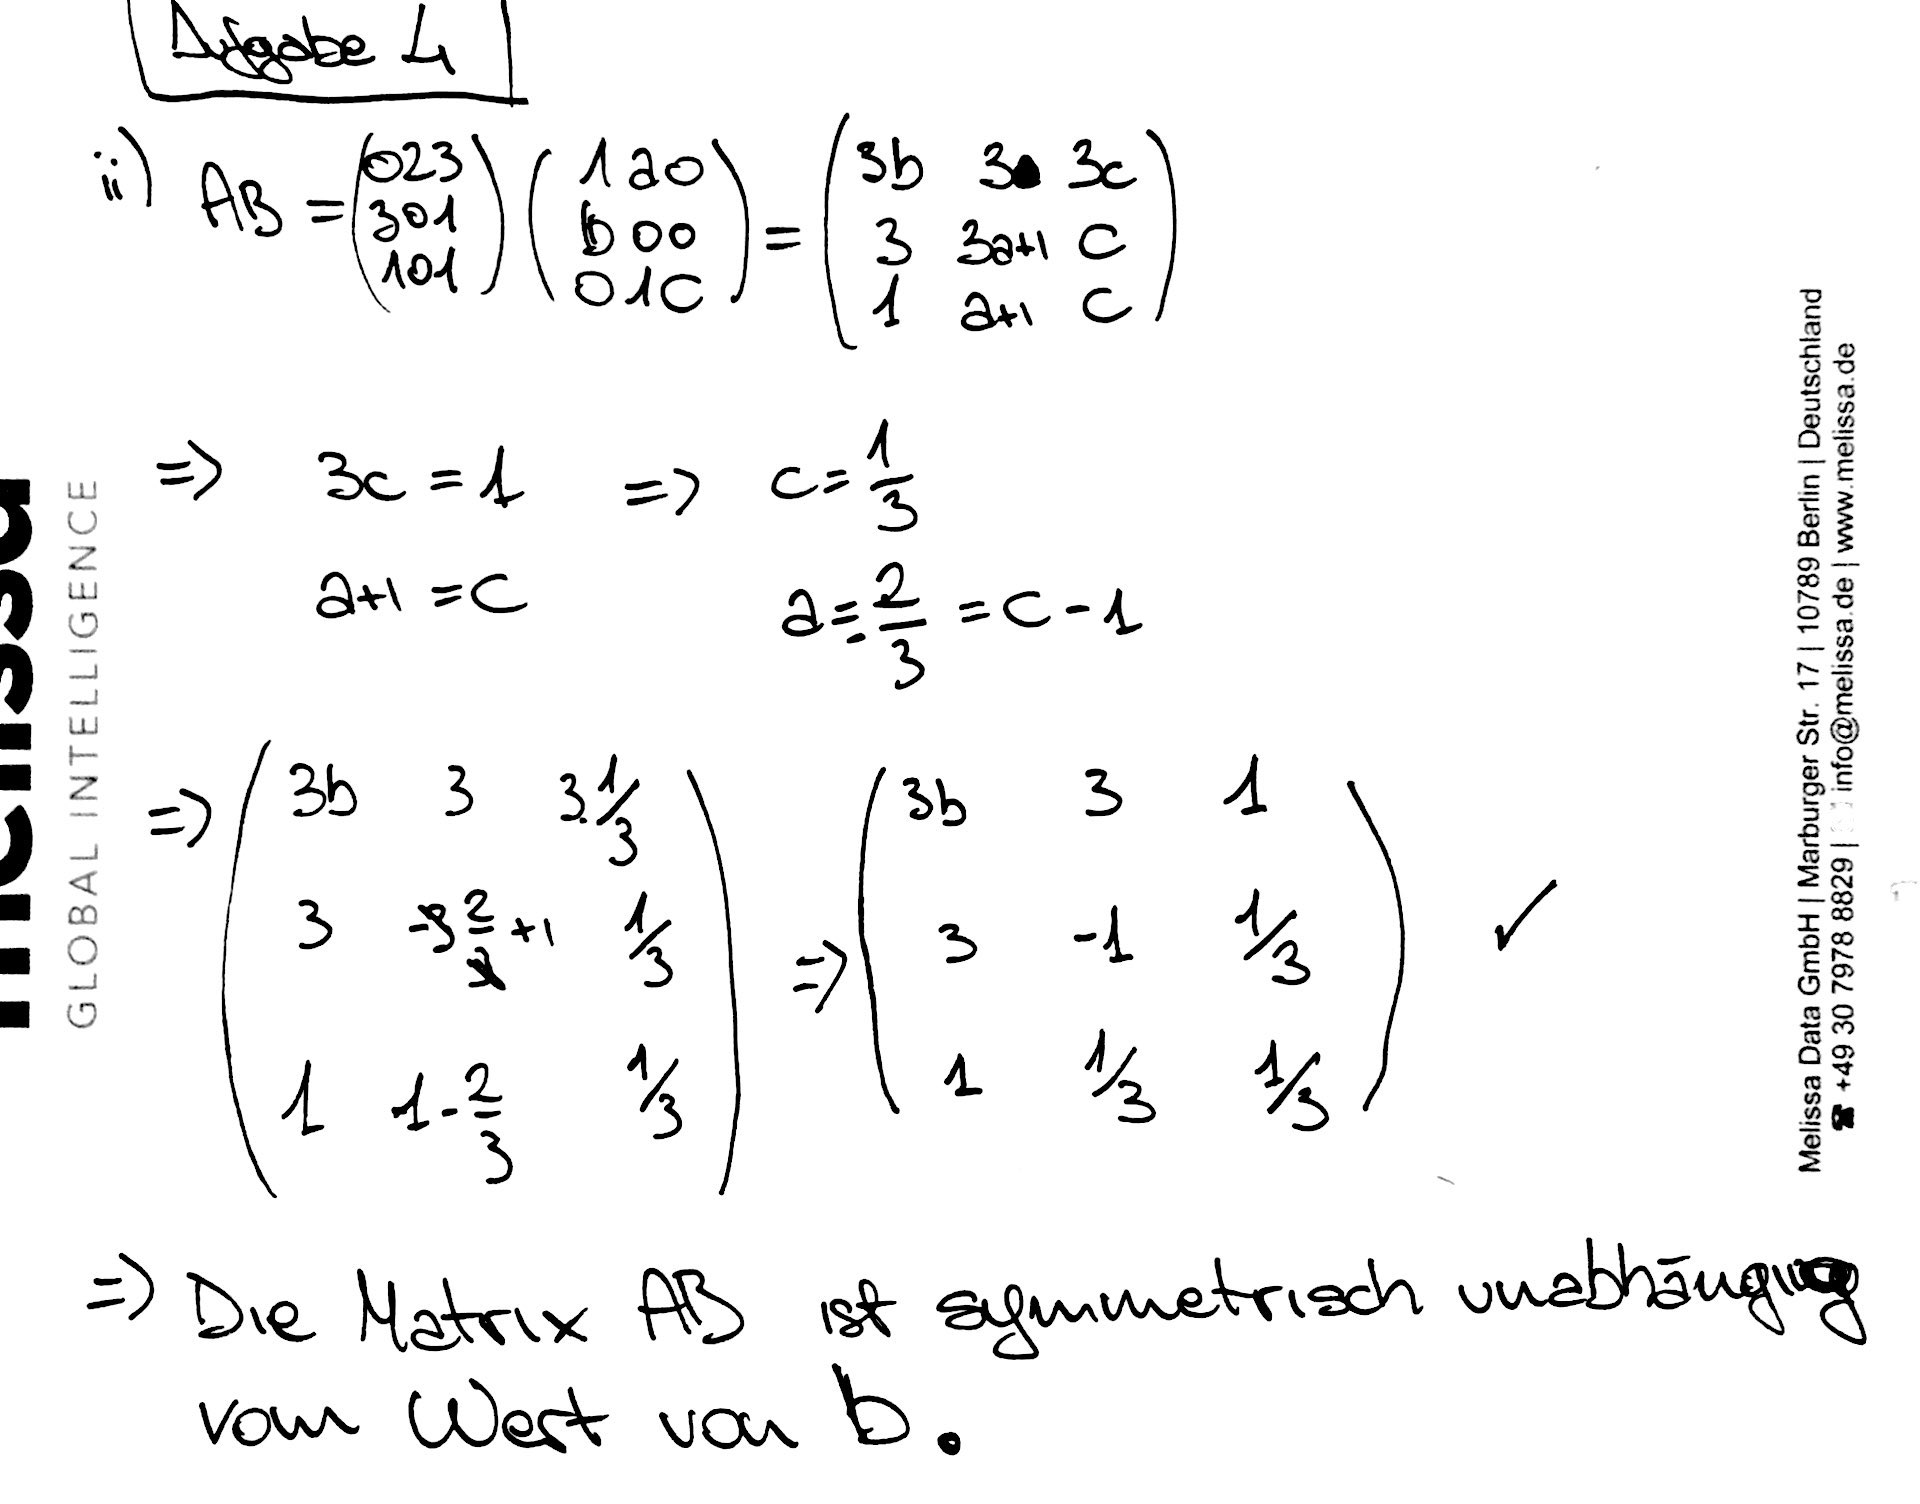 Aufgabe 4
ii) AB = (023 301 101) (1a0 b00 01c) = (3b 3 3c
3 3a+1 c
1 a+1 c)
=> 3c = 1 => c = 1/3
a+1 = c a = -2/3 = c - 1
=> (3b 3 3·1/3
3 +1 1/3
1 1-2/3 1/3)
=> (3b 3 1
3 -1 1/3
1 1/3 1/3) ✓
=> Die Matrix AB ist symmetrisch unabhängig
vom Wert von b.
melissa
GLOBAL INTELLIGENCE
Melissa Data GmbH | Marburger Str. 17 | 10789 Berlin | Deutschland
☎ +49 30 7978 8829 | info@melissa.de | www.melissa.de